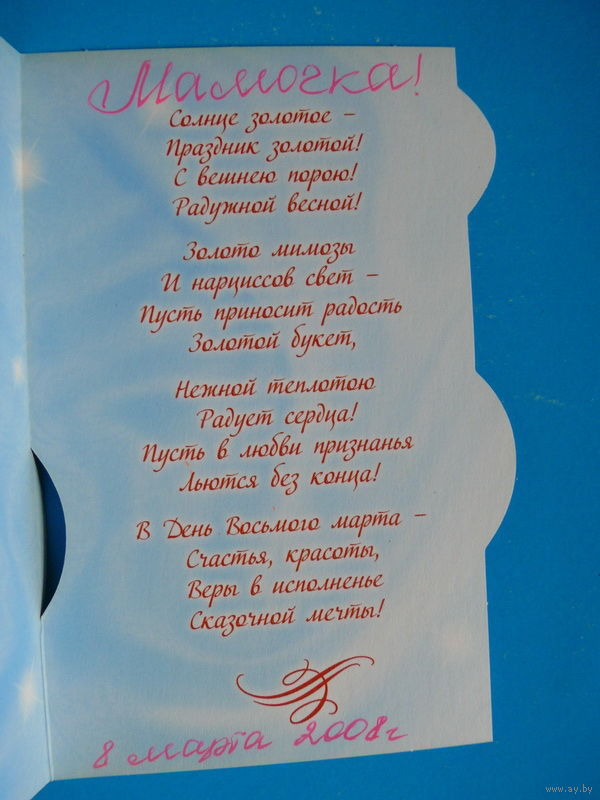 Мамочка!
Солнце золотое –
Праздник золотой!
С вешнею порою!
Радужной весной!
Золото мимозы
И нарциссов свет –
Пусть приносит радость
Золотой букет,
Нежной теплотою
Радует сердца!
Пусть в любви признанья
Льются без конца!
В День Восьмого марта –
Счастья, красоты,
Веры в исполненье
Сказочной мечты!
8 марта 2008г
www.ay.by